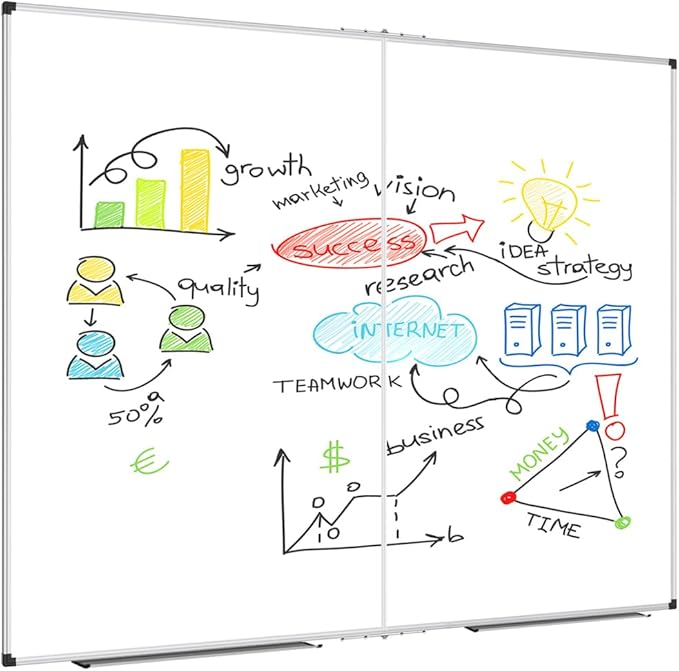 growth
marketing
vision
success
research
iDEA
strategy
quality
iNTERNET
TEAMWORK
50%
a
€
$
business
b
!
MONEY
?
TIME